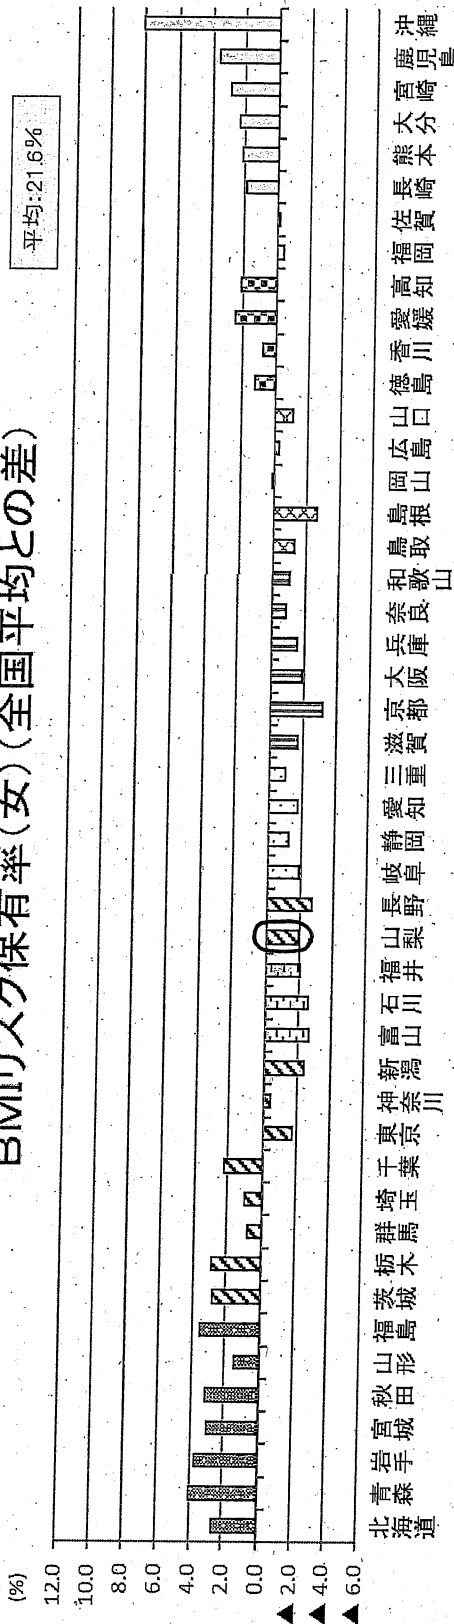 BMIリスク保有率(女)(全国平均との差)
平均:21.6%
(%)
12.0
10.0
8.0
6.0
4.0
2.0
0.0
▲ 2.0
▲ 4.0
▲ 6.0
北海道
青森
岩手
宮城
秋田
山形
福島
茨城
栃木
群馬
埼玉
千葉
東京
神奈川
新潟
富山
石川
福井
山梨
長野
岐阜
静岡
愛知
三重
滋賀
京都
大阪
兵庫
奈良
和歌山
鳥取
島根
岡山
広島
山口
徳島
香川
愛媛
高知
福岡
佐賀
長崎
熊本
大分
宮崎
鹿児島
沖縄